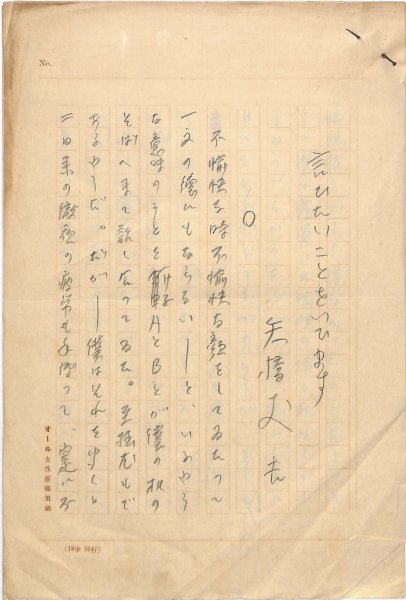 No.
言ひたいことをいひます
矢橋丈吉
○
不愉快な時不愉快な顔をしてゐたつて
一文の徳にもならない――と、いふやう
な意味のことをAとBとが僕の机の
そばへ来て話し合つてゐた。至極尤もで
あるやうだ。だが――僕はそれを
二日来の徹夜の疲労も手伝つて、
オール女性原稿用紙
(18字 10行)